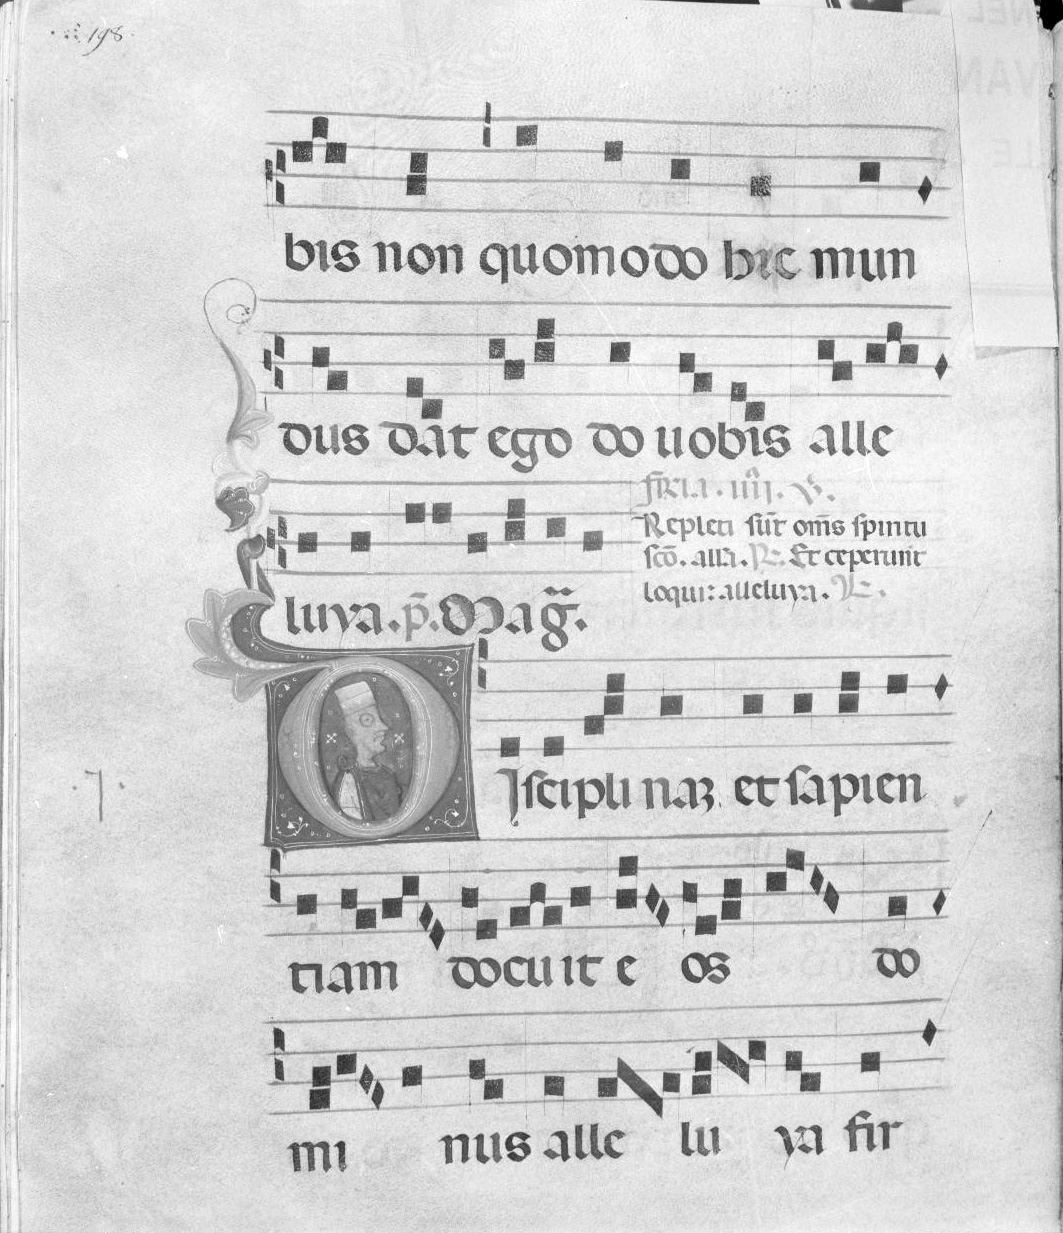 198
bis non quomodo hic mun
dus dat ego do uobis alle
fr̄ia. iiij. V̄.
Repleti sūt om̄s spiritu
sc̄o. all̄a. R̄. Et ceperunt
loqui: alleluya. R̄.
luya. p̄. Mag̅.
Isciplinaꝫ et sapien
tiam docuit eos do
minus alleluya fir